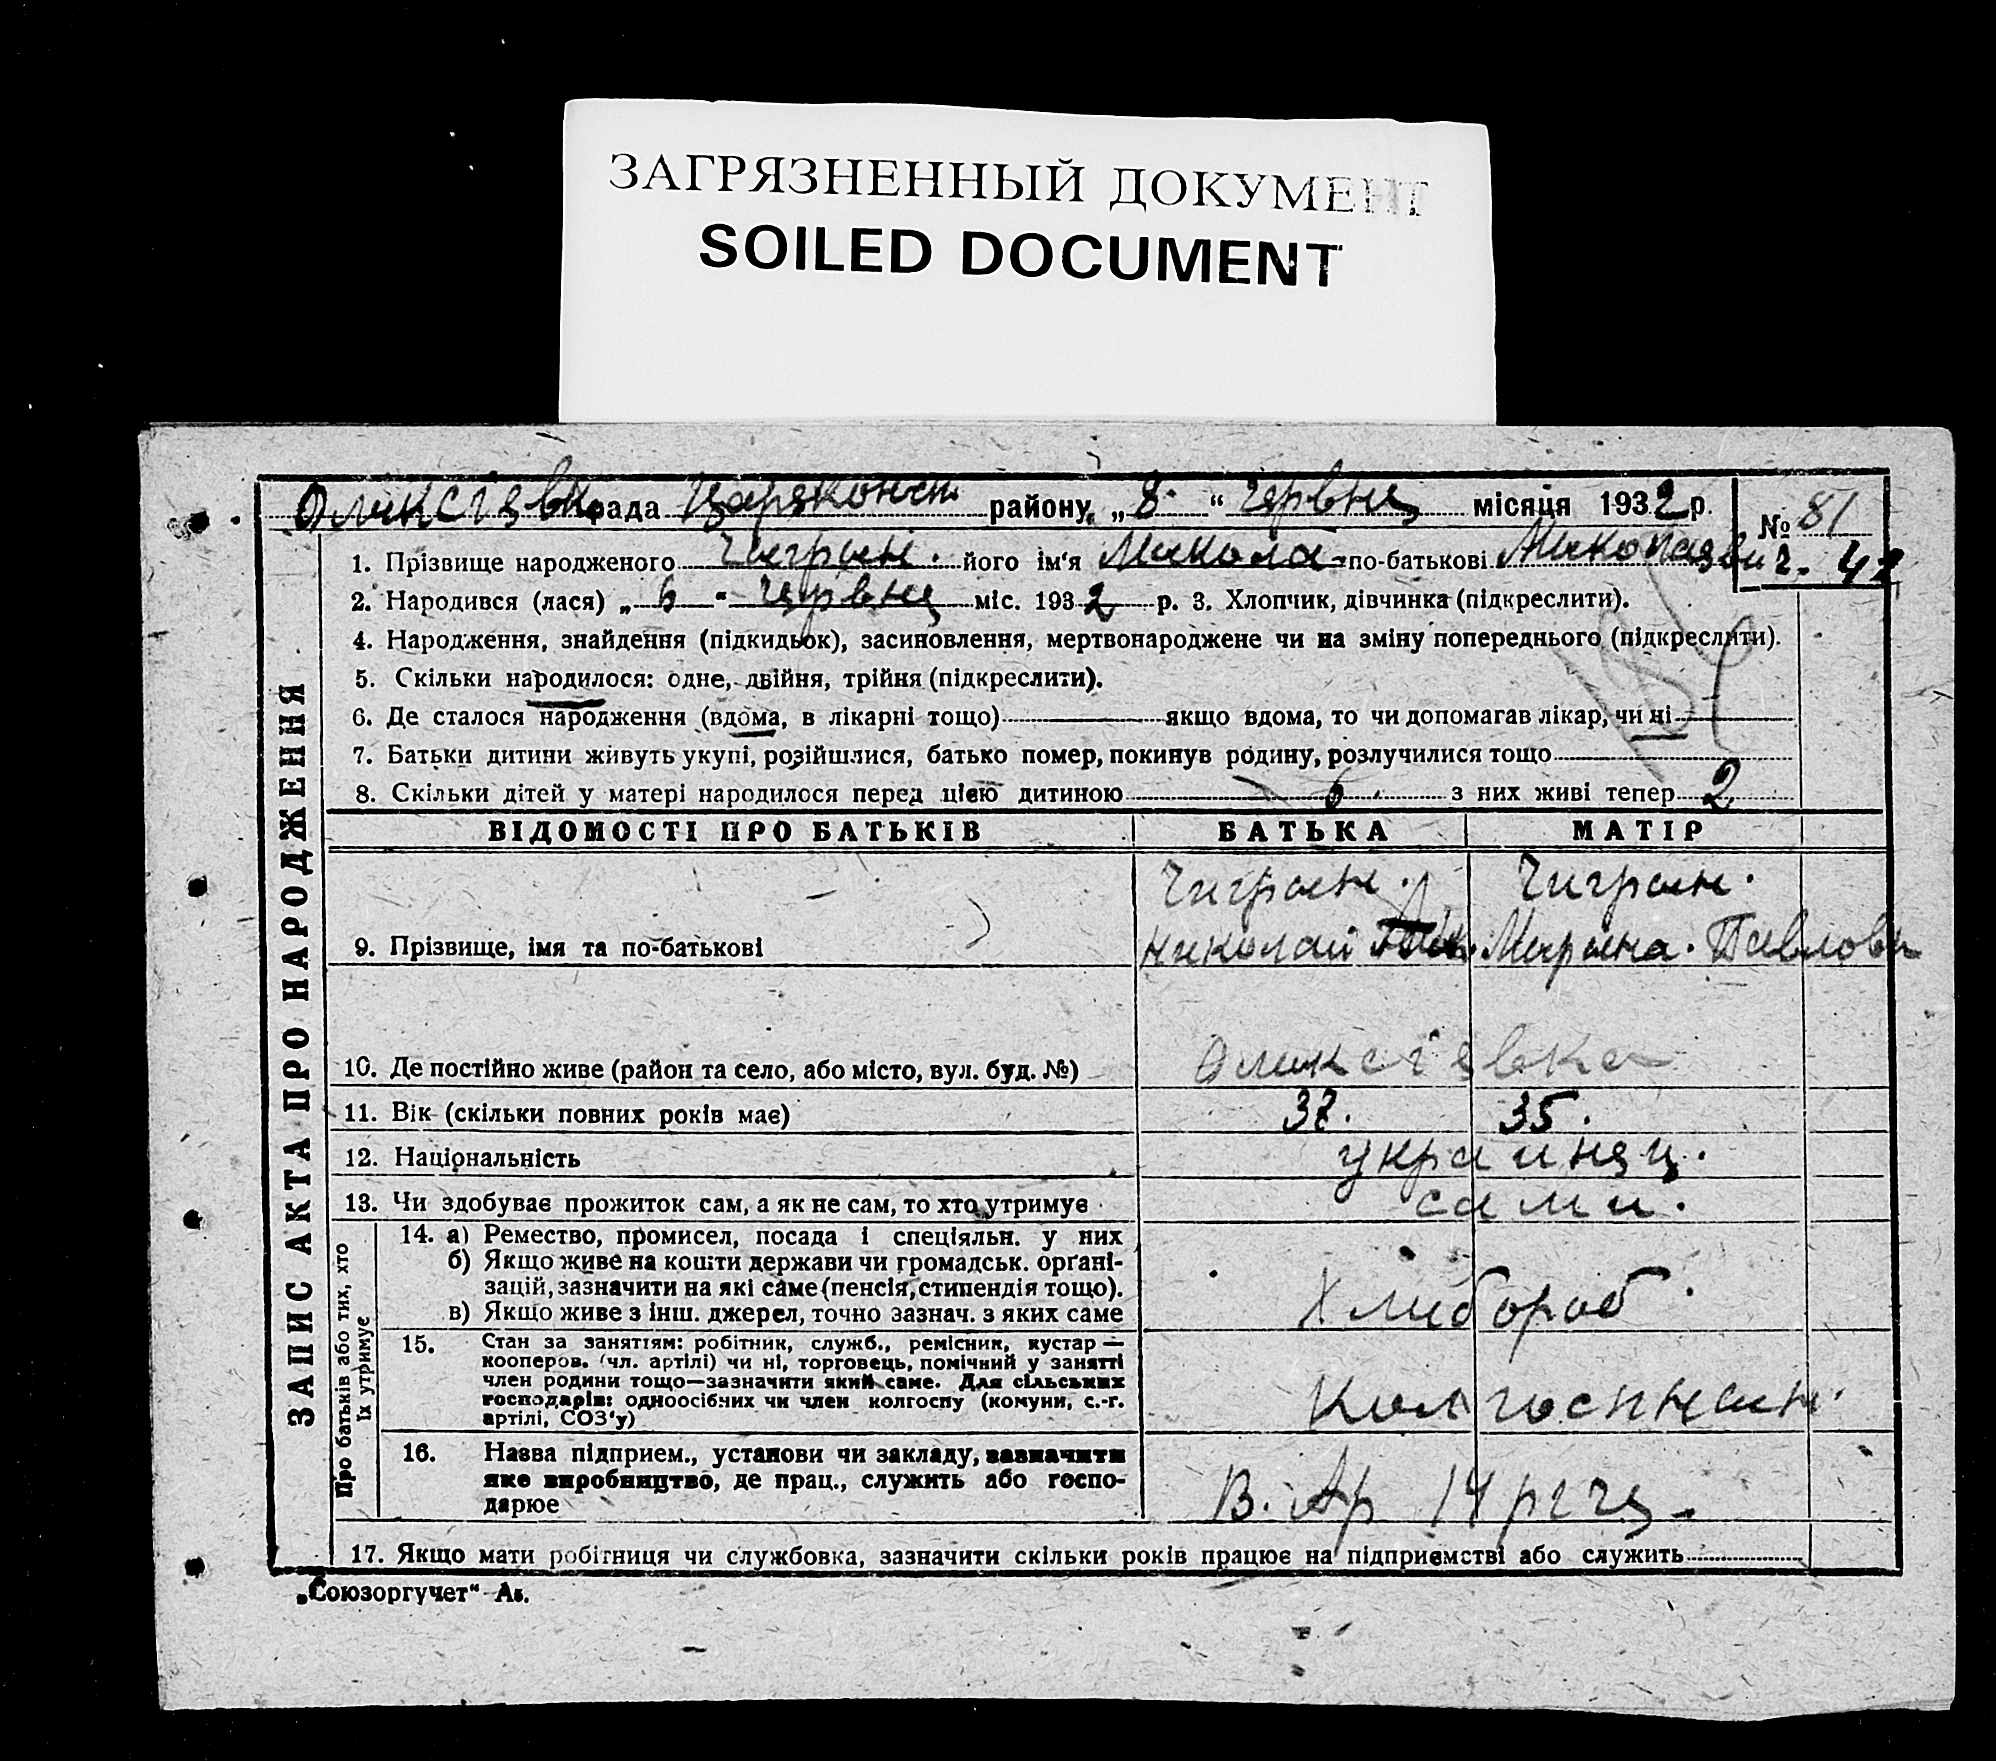 ЗАГРЯЗНЕННЫЙ ДОКУМЕНТ
SOILED DOCUMENT
рада Царяконст. району „8“ червня місяця 1932 р. № 81
1. Прізвище народженого Чигрин. його ім'я Микола по-батькові
2. Народився (лася) „6“ червня міс. 1932 р. 3. Хлопчик, дівчинка (підкреслити).
4. Народження, знайдення (підкидьок), засиновлення, мертвонароджене чи на зміну попереднього (підкреслити).
5. Скільки народилося: одне, двійня, трійня (підкреслити).
6. Де сталося народження (вдома, в лікарні тощо) якщо вдома, то чи допомагав лікар, чи ні
7. Батьки дитини живуть укупі, розійшлися, батько помер, покинув родину, розлучилися тощо
8. Скільки дітей у матері народилося перед цією дитиною 6 з них живі тепер 2
ЗАПИС АКТА ПРО НАРОДЖЕННЯ
ВІДОМОСТІ ПРО БАТЬКІВ БАТЬКА МАТІР
Чигрин. Чигрин.
9. Прізвище, імя та по-батькові Николай Марина. Павлов
10. Де постійно живе (район та село, або місто, вул. буд. №) Олексієвка
11. Вік (скільки повних років має) 37. 35.
12. Національність украинец.
13. Чи здобуває прожиток сам, а як не сам, то хто утримує сами.
Про батьків або тих, хто їх утримує
14. а) Ремество, промисел, посада і спеціяльн. у них
б) Якщо живе на кошти держави чи громадськ. орґані-
зацій, зазначити на які саме (пенсія, стипендія тощо).
в) Якщо живе з інш. джерел, точно зазнач. з яких саме Хлибороб
15. Стан за заняттям: робітник, служб., ремісник, кустар —
кооперов. (чл. артілі) чи ні, торговець, помічний у занятті
член родини тощо—зазначити який саме. Для сільських
господарів: одноосібних чи член колгоспу (комуни, с.-г.
артілі, СОЗ'у) Колгоспник.
16. Назва підприєм., установи чи закладу, зазначити
яке виробництво, де прац., служить або госпо-
дарює В. Ар 14
17. Якщо мати робітниця чи службовка, зазначити скільки років працює на підприємстві або служить
„Союзоргучет“